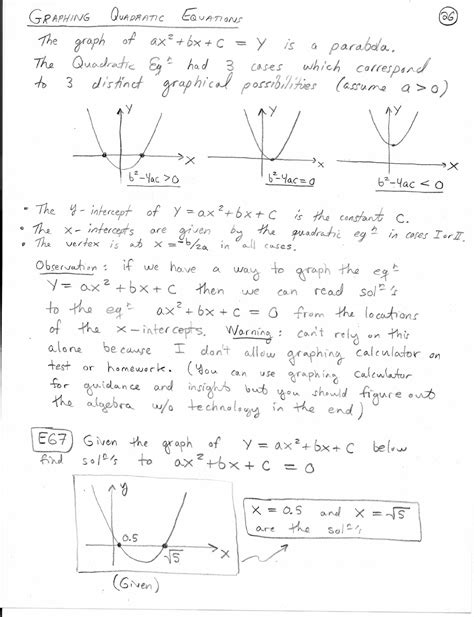 GRAPHING QUADRATIC EQUATIONS
26
The graph of ax²+bx+c = y is a parabola.
The Quadratic Eqⁿ had 3 cases which correspond
to 3 distinct graphical possibilities (assume a>0)
y y y
x x x
b²-4ac > 0 b²-4ac = 0 b²-4ac < 0
• The y-intercept of y = ax²+bx+c is the constant c.
• The x-intercepts are given by the quadratic eqⁿ in cases I or II.
• The vertex is at x = -b/2a in all cases.
Observation: if we have a way to graph the eqⁿ
y = ax²+bx+c then we can read solⁿ's
to the eqⁿ ax²+bx+c = 0 from the locations
of the x-intercepts. Warning: can't rely on this
alone because I don't allow graphing calculator on
test or homework. (You can use graphing calculator
for guidance and insight but you should figure out
the algebra w/o technology in the end)
E67 Given the graph of y = ax²+bx+c below
find solⁿ's to ax²+bx+c = 0
y
0.5
√5
x
(Given)
x = 0.5 and x = √5
are the solⁿ's